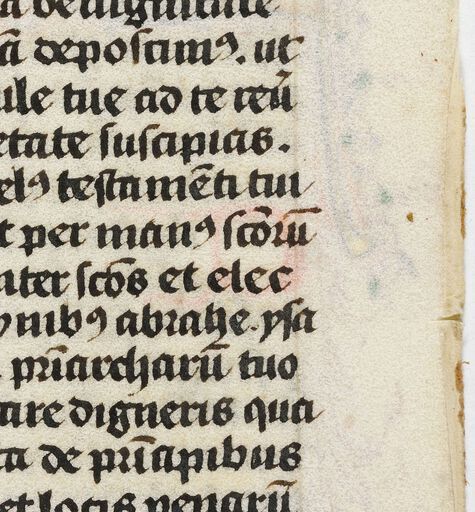 benignitate
deposcimꝰ. ut
ule tue ad te reū
etate suscipias.
elꝰ testamēti tui
t per manꝰ scōrū
inter scōs et elec
nibꝰ abrahe. ysa
pr̄iarcharū tuo
care digneris qua
de prīcipibus
et locis penarū